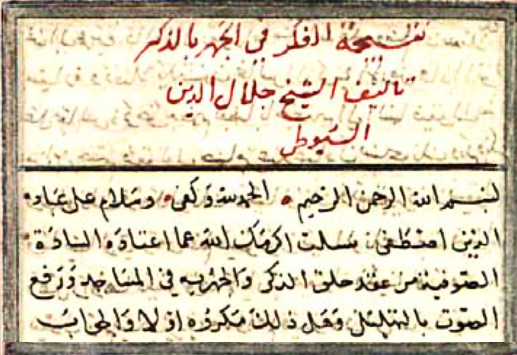 نتيجة الفكر في الجهر بالذكر
تاليف الشيخ جلال الدين
السيوطي
بسم الله الرحمن الرحيم الحمد لله وكفى وسلام على عباده
الذين اصطفى سالت اكرمك الله عما اعتاده السادة
الصوفية من عقد حلق الذكر والجهر به في المساجد ورفع
الصوت بالتهليل وهل ذلك مكروه او لا والجواب